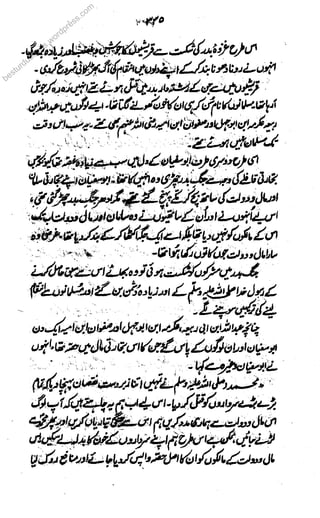 ۳۳۵
اس طرح غزوۂ بدر کی شکست سے قریشیوں کا جوش و غضب اور زیادہ بڑھ گیا۔
انہوں نے رونا دھونا بند کر کے اپنے دلوں میں انتقام کی آگ بھڑکانی شروع کر دی۔
قریشیوں میں جن کے رشتہ دار بدر میں قتل ہوئے تھے انہیں رہ رہ کر جوش
آ رہا تھا۔ مسلمانوں کا نام سن کر ہی ان کا خون کھولنے لگتا تھا۔ ایسے لوگوں میں عبداللہ ابن
ربیعہ عکرمہ ابن ابوجہل اور صفوان ابن امیہ رضی اللہ عنہم بھی تھے۔ یہ سب اس وقت
تک مسلمان نہیں ہوئے تھے۔
اسی طرح دوسری طرف ابوسفیان کے دل میں سب سے زیادہ غصہ تھا کیونکہ جس
تجارتی قافلے کی وجہ سے جنگ بدر چھڑی وہ انہیں کا تھا۔ ابوسفیان اپنے تجارتی سامان
اور مال و دولت کے ساتھ بچ کر مکے پہنچ گئے تھے۔ مگر ادھر جنگ بدر چھڑ گئی تھی،
اس لئے انہوں نے اور ان کے ساتھیوں نے وہ سامان اور مال و دولت اب تک
اس کے مالکوں کو نہیں دیا تھا بلکہ اسے ایک جگہ اکٹھا کر کے بند کر دیا تھا۔ غرض وہ
سارا مال و دولت جوں کا توں رکھا ہوا تھا۔
جنگ بدر میں مشرکوں کو شکست ہوئی تو وہ بجائے اس سے سبق حاصل کرنے
کے رسول خدا صلی اللہ علیہ وسلم کے اور زیادہ دشمن بن گئے اور مسلمانوں سے انتقام
لینے کی ترکیبیں سوچنے لگے۔
چنانچہ عبداللہ ابن ابی ربیعہ، عکرمہ ابن ابوجہل اور صفوان ابن امیہ ایک دن
ابوسفیان اور ان لوگوں کے پاس گئے جن کا اس تجارتی مال میں حصہ تھا، انہوں
نے ابوسفیان وغیرہ سے کہا۔
"محمد (صلی اللہ علیہ وسلم) نے تمہیں اتنا زبردست نقصان پہنچا دیا کہ تمام
بڑے بڑے سرداروں کو قتل کر دیا۔ اس لئے اب ہم یہ چاہتے ہیں کہ آپ لوگ
اس مال و دولت سے ہماری مدد کریں ہم اس سے جنگی تیاریاں کریں اور پھر محمد سے
لڑنے جائیں، ممکن ہے اس طرح ہم اپنے سرداروں کے خون کا بدلہ لے سکیں، بس
مال و دولت کے مالکوں کو ان کا اصل حصہ واپس کر دیا جائے اور منافع روک لیا